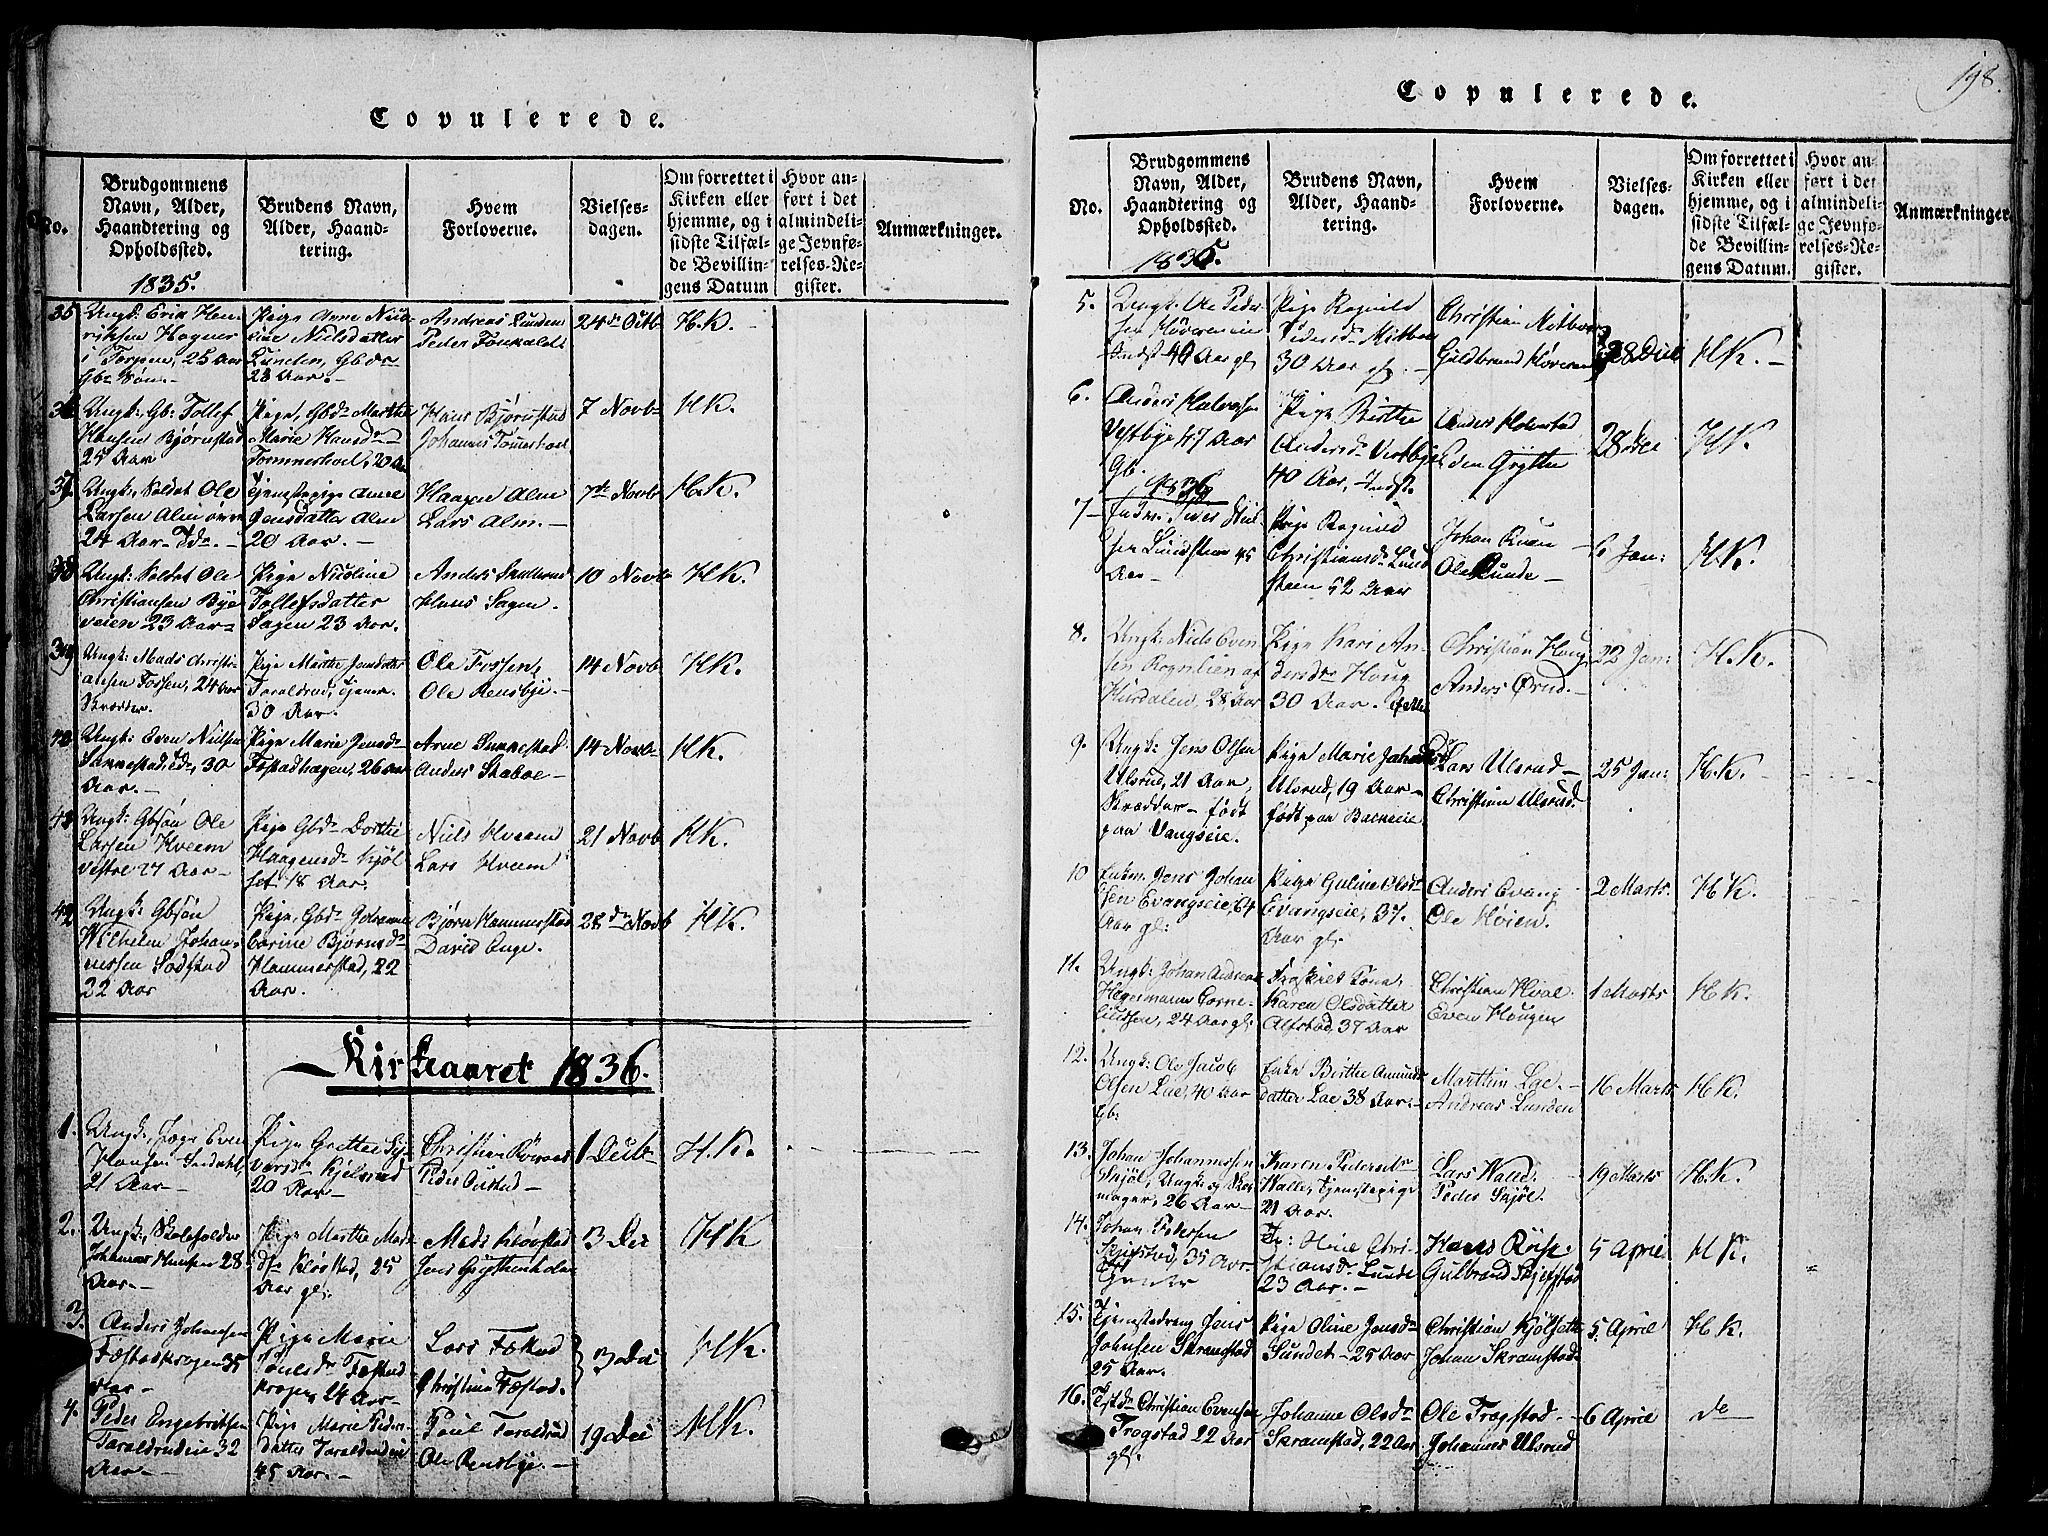 198.
Copulerede.
No.
Brudgommens
Navn, Alder,
Haandtering og
Opholdssted.
1835.
Brudens Navn,
Alder, Haand-
tering.
Hvem
Forloverne.
Vielses-
dagen.
Om forrettet i
Kirken eller
hjemme, og i
sidste Tilfæl-
de Bevillin-
gens Datum
Hvor an-
ført i det
almindeli-
ge Jevnfø-
relses-Re-
gister.
Anmærkninger.
35
Ungk: Erik Hen-
riksen Hagner
i Torpen, 25 Aar
Gb: Søn.-
Pige Anne
Nielsdatter
Lunden, Gbdr
28 Aar.-
Andreas Lunden
Peder
24de Octb
H.K.
36
Ungk: Gb: Tollef
Hansen Bjørnstad
25 Aar
Pige, Gbdr Marthe
Marie Hansdr
20
Hans Bjørnstad
Johannes
7 Novbr
H.K.
37.
Ungk: Soldat Ole
Larsen Alm
24 Aar
Tjenestepige Anne
Jensdatter Alm
20 Aar.-
Haagen Alm
Lars Alm.-
7de Novbr
H.K.
38
Ungk: Soldat Ole
Christiansen Bye
veien 23 Aar-
Pige Nicoline
Tollefsdatter
Sagen 23 Aar.
Anders
Hans Sagen.
10 Novbr
H.K.
39
Ungk: Mads Christi-
ansen Fossen, 24 Aar
Skrædder.
Pige Marthe Jensdatter
Taraldrud, tjener
30 Aar.
Ole Fossen,
Ole Rensbye.-
14 Novbr
H.K.
40
Ungk: Even Nielsen
Sannestad, 30
Aar.-
Pige Marie Jensdr
Fæstadhagen, 26 Aar
Arne Sannestad
Anders Skaboe-
14 Novbr
H.K.
41
Ungk: Gbsøn Ole
Larsen Hveem
vestre 27 Aar-
Pige Gbdr Dorthe
Haagensdr Kjøl
set 18 Aar.
Niels Hveem
Lars Hveem
21 Novb
H.K.
42
Ungk: Gbsøn
Wilhelm Johan-
nessen Sodstad
22 Aar
Pige, Gbdr Johanne
Carine Bjørnsdr
Hammerstad, 22
Aar.
Bjørn Hammerstad
David Enge.
28de Novb
H.K.
Kirkeaaret 1836.
1.
Ungk: Jæger Even
Hansen
21 Aar-
Pige Grethe Sy-
versdr Kjelsrud
20 Aar-
Christian
Peder
1 Decbr
H.K.
2.
Ungk: Skoleholder
Johannes Hansen 28
Aar.-
Pige Marthe Mads
dr Kløvstad, 25
Aar gl.
Mads Kløvstad
Jens Grythenholen
13 Dec
H.K
3.
Anders Johansen
Fæstadkragen 35
Aar-
Pige Marie
Poulsdr Fæstad
kragen 24 Aar-
Lars Fæstad
Christian Fæstad.
13 Dec
H.K.
4.
Peder Engebretsen
Taraldrudeie 32
Aar-
Pige Marie Peder-
datter Taraldrudeie
45 Aar.-
Poul Taraldrud
Ole Rensbye.-
19 Dec
H.K.
Copulerede.
No.
Brudgommens
Navn, Alder,
Haandtering og
Opholdssted.
1835.
Brudens Navn,
Alder, Haand-
tering.
Hvem
Forloverne.
Vielses-
dagen.
Om forrettet i
Kirken eller
hjemme, og i
sidste Tilfæl-
de Bevillin-
gens Datum.
Hvor an-
ført i det
almindeli-
ge Jevnfø-
relses-Re-
gister.
Anmærkninger.
5.
Ungk: Ole Peder-
sen Høvereneie
Indst 40 Aar gl.
Pige Ragnild
Pedersdr
30 Aar gl.-
Christian
Guldbrand Høveren
28 Dec
H.K.-
6.
Anders Halvorsen
Vestbye 47 Aar
Gb.
Pige Birthe
Andersdr Vestbye
40 Aar, Indst.
Anders Holmstad
Eden Grythe
28 Dec
H.K
1836
7-
Enkm. Peder
Lundsteen 45
Aar-
Pige Ragnild
Christiansdr Lund
steen 52 Aar
Johan Ruen
Ole Runde-
6 Jan:
H.K.
8.
Ungk: Niels Even
sen Rognlien af
Hurdalen, 28 Aar
Pige Kari An-
dersdr Houg
30 Aar.
Christian Houg
Anders Ørud.-
22 Jan:
H.K.
9.
Ungk: Jens Olsen
Ulsrud, 21 Aar,
Skrædder- født
paa Vangseie.
Pige Marie
Ulsrud, 19 Aar-
født paa
Lars Ulsrud-
Christian Ulsrud.
25 Jan:
H.K.
10
Enkm. Jens Johan
sen Evangseie, 64
Aar gl:
Pige Guline Olsdr
Evangseie, 37.
Aar gl.
Anders Evang
Ole Høien.
2 Marts.
H.K.
11.
Ungk: Johan Andreas
Hegermann Corne-
liussen, 24 Aar gl:
Karen Olsdatter
Alfstad, 37 Aar
Christian
Even Hougen
1 Marts
H.K.
12.
Ungk: Ole Jacob
Olsen Lae, 40 Aar
Gb:
Enke Birthe Amunds
datter Lae 38 Aar.-
Marthin Lae.-
Andreas Lunden
16 Marts
H.K.
13.
Johan Johannessen
Skjøl, Ungk: og Sko
mager, 26 Aar-
Karen Pedersdr
Walle, tjenestepige
21 Aar.
Lars Walle.
Peder Skjøl.
19 Marts
H.K.
14.
Johan Pedersen
35 Aar.
tjener
Pi: Oline Chri-
stiansdr Lunde
23 Aar.-
Hans
Gulbrand Skjefstad
5 April
H.K.
15.
Tjenestedreng Jens
Johnsen Skramstad
25 Aar.
Pige Oline Jensdr
Sundet-25 Aar
Christian Kjølseth
Johan Skramstad.
5 April
H.K.
16.
Christian Evensen
Trogstad 22 Aar
gl.
Johanne Olsdr
Skramstad, 22 Aar
Ole Trogstad-
Johannes Ulsrud
6 April
do